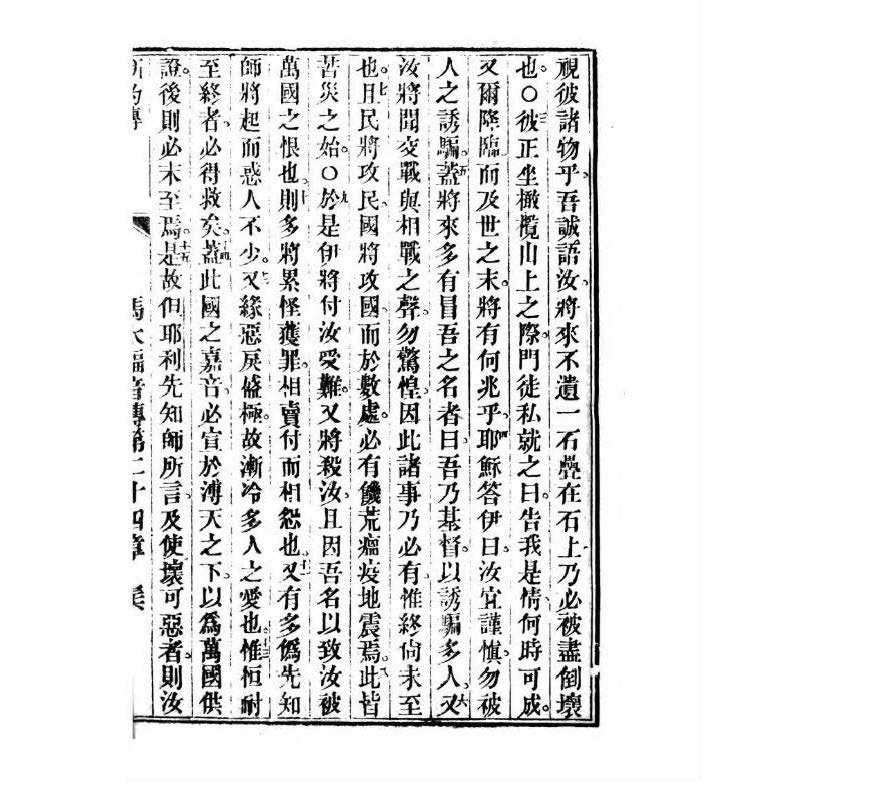 視彼諸物乎。吾誠語汝、將來不遺一石疊在石上、乃必被盡倒壞
也。○三彼正坐橄欖山上之際、門徒私就之曰、告我是情何時可成。
又爾降臨而及世之末。將有何兆乎。四耶穌答伊曰、汝宜謹慎、勿被
人之誘騙。五蓋將來多有冒吾之名者曰、吾乃基督。以誘騙多人。六又
汝將聞交戰與相戰之聲。勿驚惶。因此諸事乃必有、惟終尚未至
也。七且民將攻民、國將攻國、而於數處、必有饑荒瘟疫地震焉。八此皆
苦災之始。○九於是伊將付汝受難。又將殺汝。且因吾名以致汝被
萬國之恨也。十則多將累怪獲罪。相賣付而相怨也。十一又有多僞先知
師將起而惑人不少。十二又緣惡戾盛極。故漸冷多人之愛也。十三惟恒耐
至終者、必得救矣。十四蓋此國之嘉音、必宣於溥天之下、以爲萬國供
證。後則必末至焉。十五是故但耶利先知師所言、及使壞可惡者、則汝
馬太福音傳第二十四章